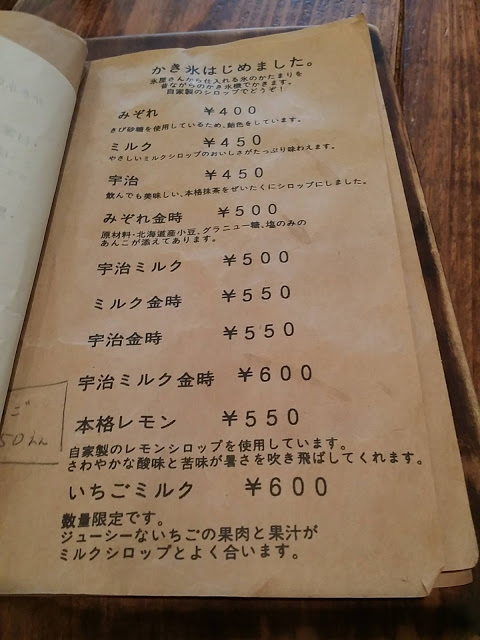 かき氷はじめました。
氷屋さんから仕入れる氷のかたまりを
昔ながらのかき氷機でかきます。
自家製のシロップでどうぞ!
みぞれ ¥400
きび砂糖を使用しているため、飴色をしています。
ミルク ¥450
やさしいミルクシロップのおいしさがたっぷり味わえます。
宇治 ¥450
飲んでも美味しい、本格抹茶をぜいたくにシロップにしました。
みぞれ金時 ¥500
原材料・北海道産小豆、グラニュー糖、塩のみの
あんこが添えてあります。
宇治ミルク ¥500
ミルク金時 ¥550
宇治金時 ¥550
宇治ミルク金時 ¥600
本格レモン ¥550
自家製のレモンシロップを使用しています。
さわやかな酸味と苦味が暑さを吹き飛ばしてくれます。
いちごミルク ¥600
数量限定です。
ジューシーないちごの果肉と果汁が
ミルクシロップとよく合います。